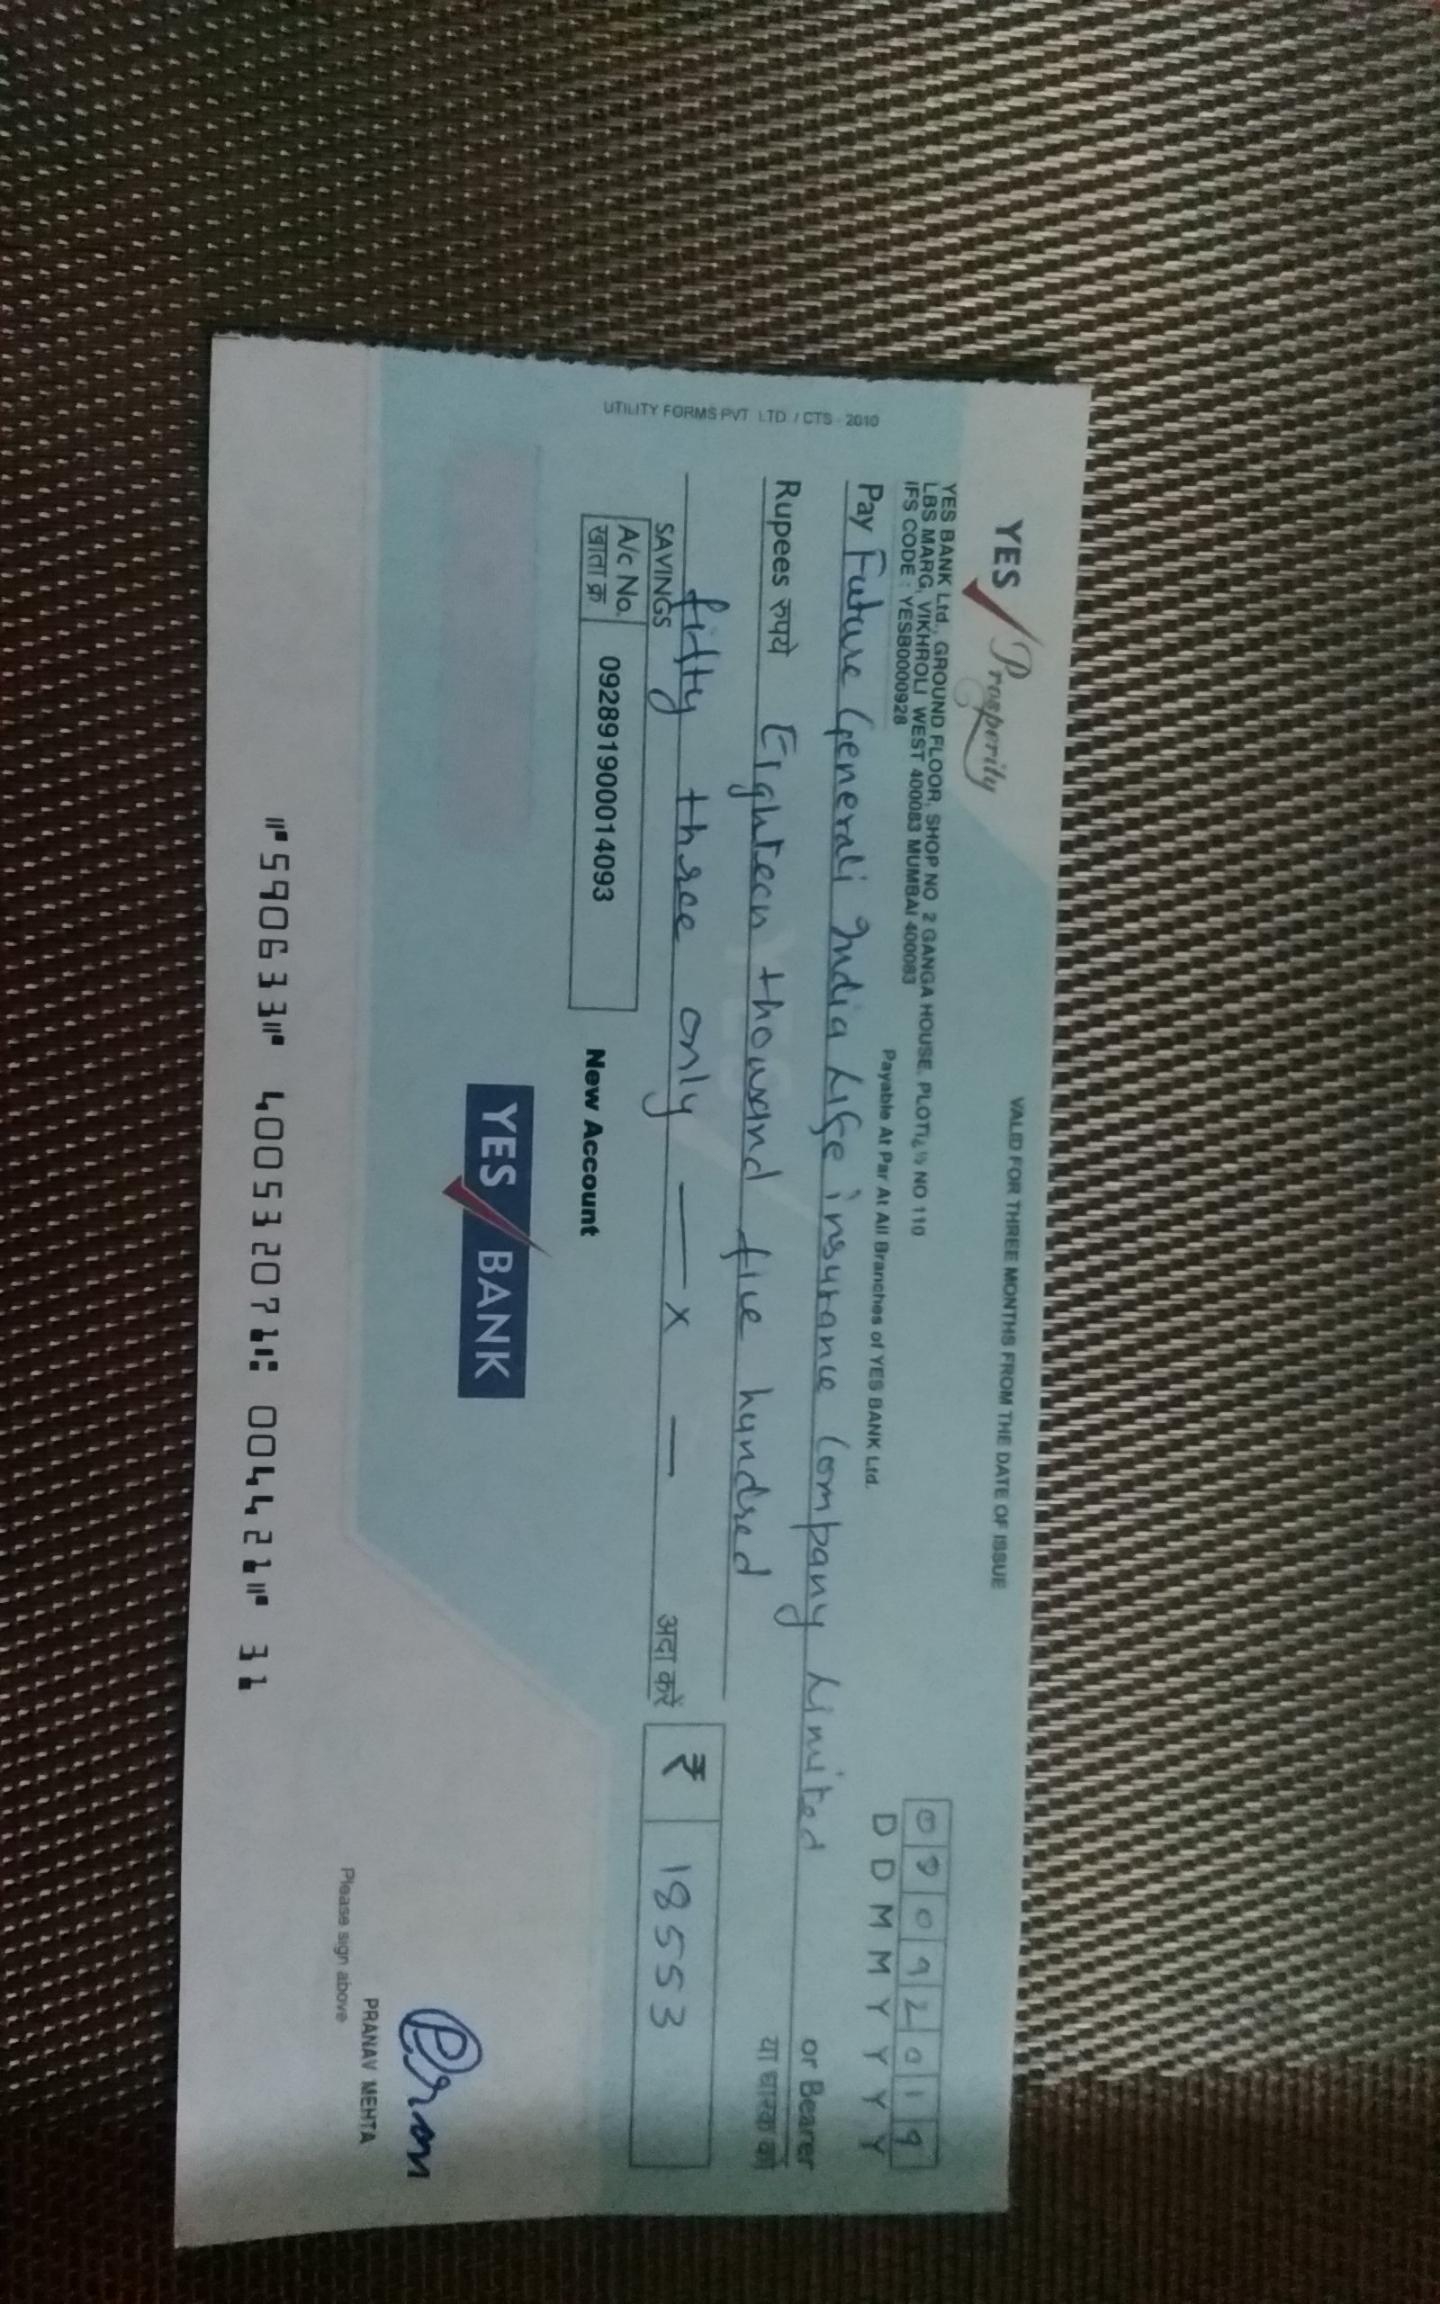 YES Prosperity
VALID FOR THREE MONTHS FROM THE DATE OF ISSUE
YES BANK Ltd., GROUND FLOOR, SHOP NO. 2 GANGA HOUSE, PLOT NO 110
LBS MARG, VIKHROLI WEST 400083 MUMBAI 400083
IFS CODE : YESB0000928
Payable At Par At All Branches of YES BANK Ltd.
0 9 0 9 2 0 1 9
D D M M Y Y Y Y
Pay Future Generali India Life insurance Company Limited or Bearer
या धारक को
Rupees रुपये Eighteen thousand five hundred
fifty three only — x — अदा करें ₹ 18553
SAVINGS
A/c No. खाता क्र 092891900014093 New Account
YES BANK
Pram
PRANAV MEHTA
Please sign above
UTILITY FORMS PVT LTD. / CTS - 2010
⑈590633⑈ 400532071⑆ 004421⑈ 31